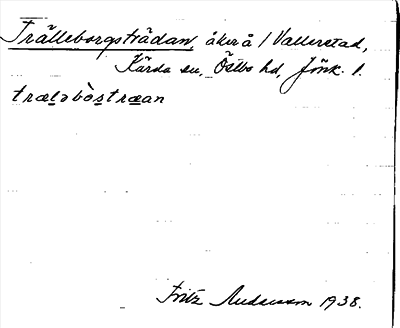 Trälleborgsträdan, åker å / Vallerstad,
Kärda sn, Östbo hd, Jönk. l.
trælabòstræan
Fritz Andersson 1938.